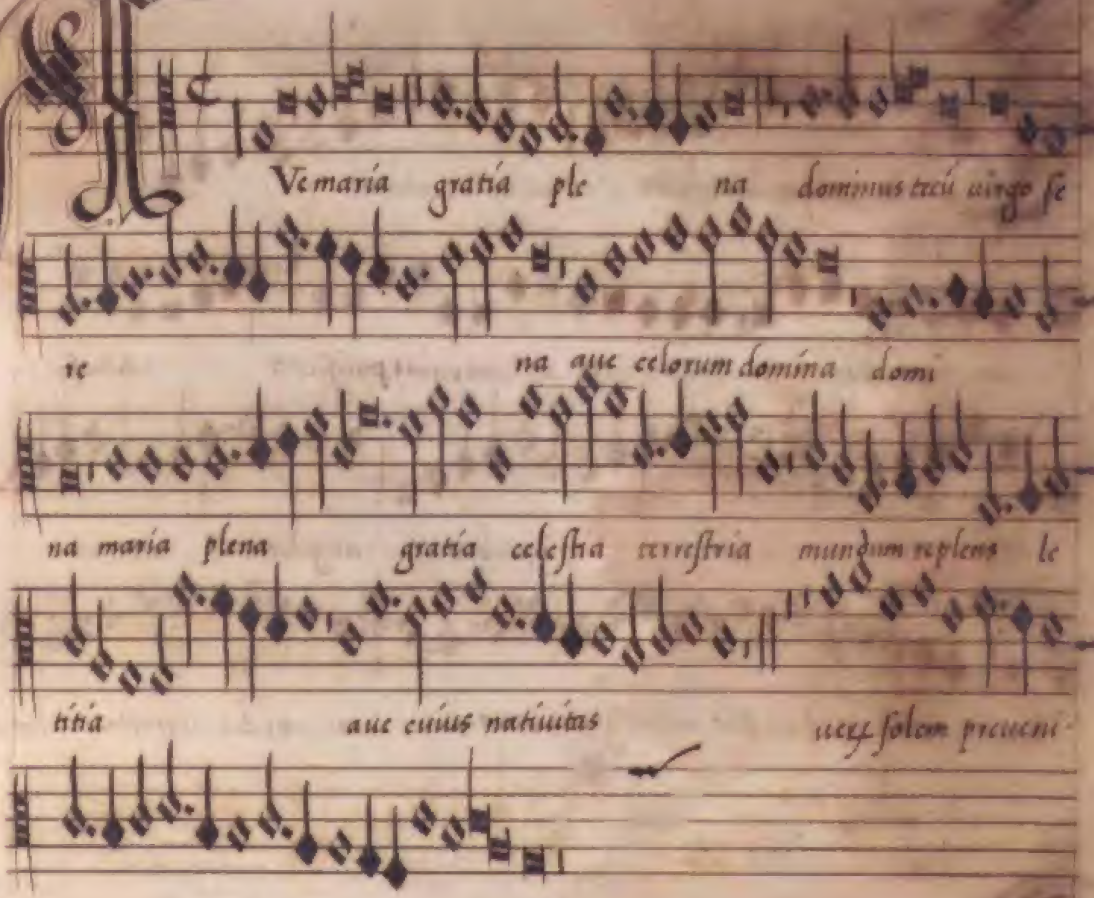 AVe maria gratia ple na dominus tecũ uirgo se
re na aue celorum domina domi
na maria plena gratia celestia terrestria mundum replens le
titia aue cuius natiuitas solem preueni